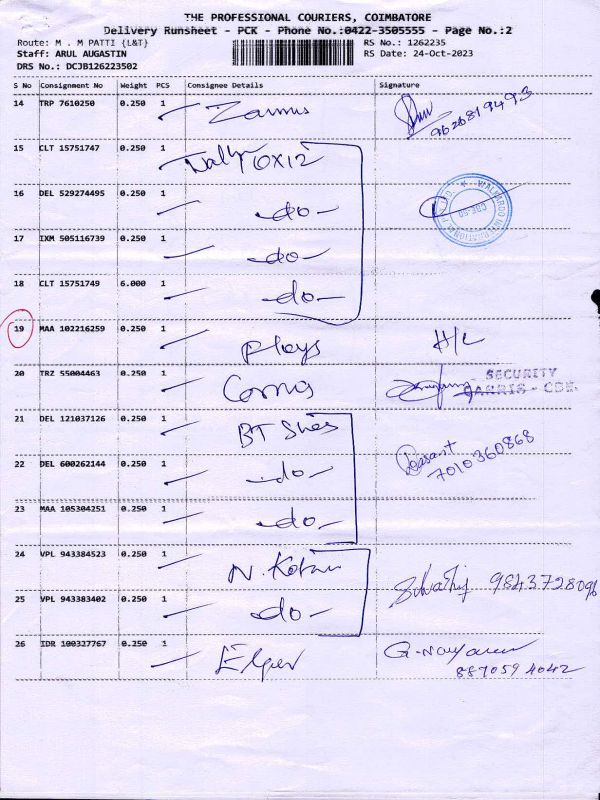 THE PROFESSIONAL COURIERS, COIMBATORE
Delivery Runsheet - PCK - Phone No.:0422-3505555 - Page No.:2
Route: M . M PATTI {L&T}
RS No.: 1262235
Staff: ARUL AUGASTIN
RS Date: 24-Oct-2023
DRS No.: DCJB126223502
S No Consignment No Weight PCS Consignee Details Signature
14 TRP 7610250 0.250 1
9626819493
15 CLT 15751747 0.250 1 10X12
16 DEL 529274495 0.250 1 -do-
17 IXM 505116739 0.250 1 -do-
18 CLT 15751749 6.000 1 -do-
19 MAA 102216259 0.250 1 H/L
20 TRZ 55004463 0.250 1
SECURITY
21 DEL 121037126 0.250 1 BT
7010360868
22 DEL 600262144 0.250 1 -do-
23 MAA 105304251 0.250 1 -do-
24 VPL 943384523 0.250 1
9843728096
25 VPL 943383402 0.250 1 -do-
26 IDR 100327767 0.250 1
8870594042